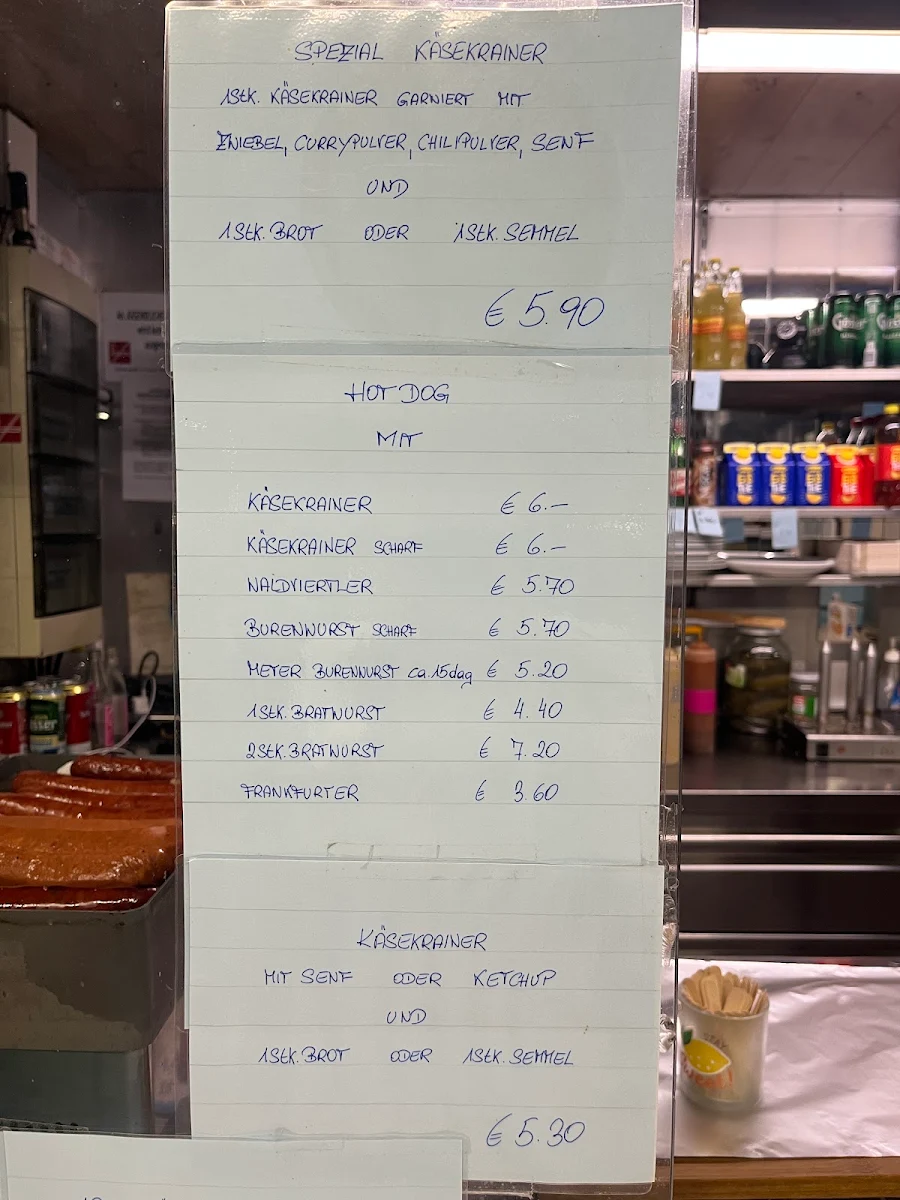 SPEZIAL KÄSEKRAINER
1Stk. KÄSEKRAINER GARNIERT MIT
ZWIEBEL, CURRYPULVER, CHILIPULVER, SENF
UND
1Stk. BROT ODER 1Stk. SEMMEL
€ 5.90
HOT DOG
MIT
KÄSEKRAINER € 6.–
KÄSEKRAINER SCHARF € 6.–
WALDVIERTLER € 5.70
BURENWURST SCHARF € 5.70
MEYER BURENWURST ca.15dag € 5.20
1Stk. BRATWURST € 4.40
2Stk. BRATWURST € 7.20
FRANKFURTER € 3.60
KÄSEKRAINER
MIT SENF ODER KETCHUP
UND
1Stk. BROT ODER 1Stk. SEMMEL
€ 5.30